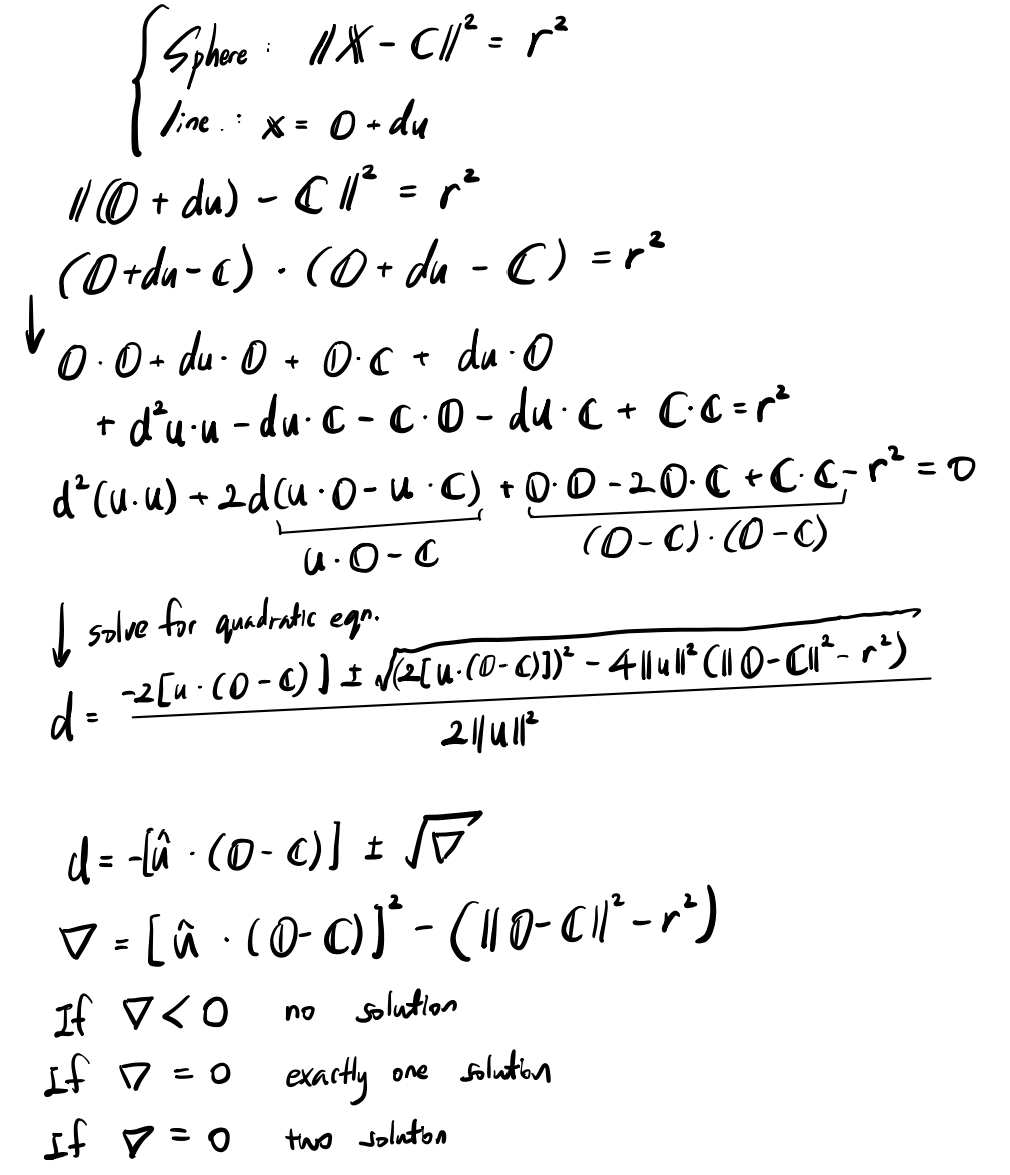 Sphere : ‖X - C‖² = r²
line : x = O + du
‖(O + du) - C‖² = r²
(O+du-C) · (O + du - C) = r²
↓
O·O + du·O + O·C + du·O
+ d²u·u - du·C - C·O - du·C + C·C = r²
d²(u·u) + 2d(u·O - u·C) + O·O - 2O·C + C·C - r² = 0
u·O - C (O - C)·(O - C)
↓ solve for quadratic eqn.
d = (-2[u·(O - C)] ± √((2[u·(O - C)])² - 4‖u‖²(‖O - C‖² - r²))) / 2‖u‖²
d = -[û · (O - C)] ± √∇
∇ = [û · (O - C)]² - (‖O - C‖² - r²)
If ∇ < 0 no solution
If ∇ = 0 exactly one solution
If ∇ = 0 two solution